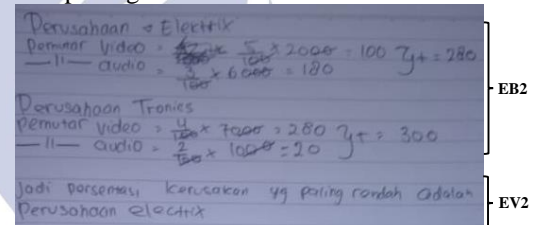 Perusahaan → Electrix
Pemutar Video = 5/100 x 2000 = 100 } + = 280
—11— audio = 3/100 x 6000 = 180
EB2
Perusahaan Tronics
Pemutar video = 4/100 x 7000 = 280 } + = 300
—11— audio = 2/100 x 1000 = 20
Jadi persentasi kerusakan yg paling rendah adalah
Perusahaan electrix
EV2